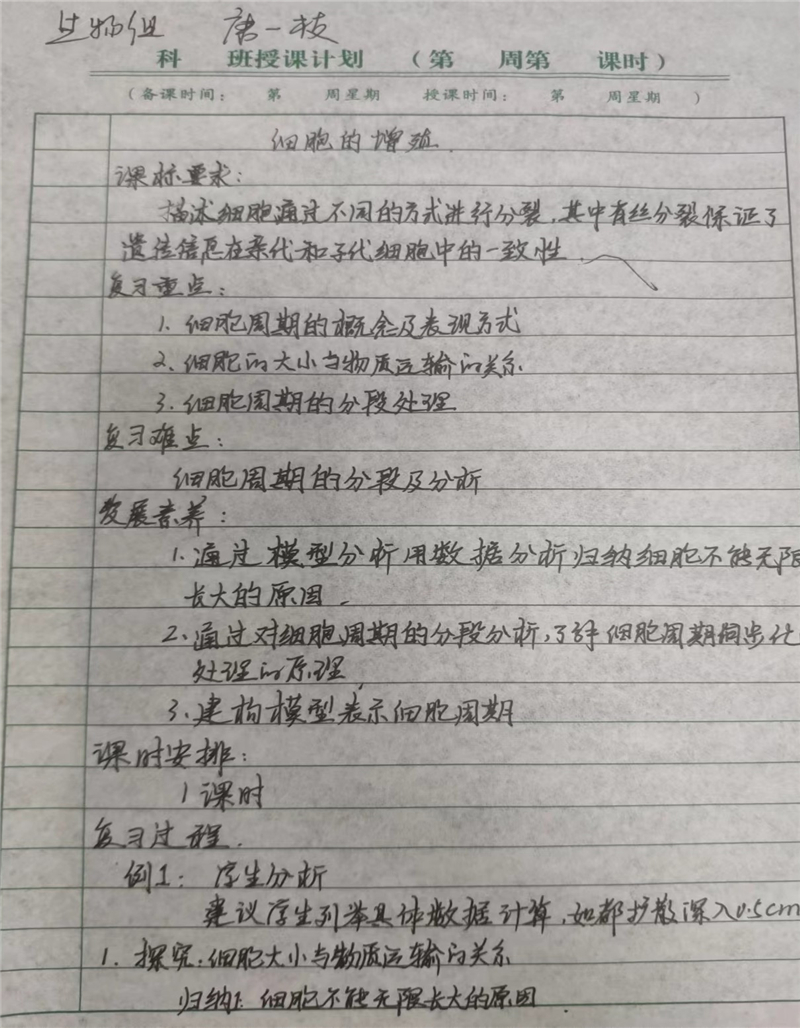 生物组 唐一枝
科 班授课计划 (第 周第 课时)
(备课时间: 第 周星期 授课时间: 第 周星期 )
细胞的增殖.
课标要求:
描述细胞通过不同的方式进行分裂,其中有丝分裂保证了
遗传信息在亲代和子代细胞中的一致性.
复习重点:
1. 细胞周期的概念及表现方式
2、细胞的大小与物质运输的关系
3. 细胞周期的分段处理
复习难点:
细胞周期的分段及分析
发展素养:
1. 通过模型分析用数据分析归纳细胞不能无限
长大的原因.
2、通过对细胞周期的分段分析,了解细胞周期同步化
处理的原理
3、建构模型表示细胞周期
课时安排:
1课时
复习过程.
例1: 学生分析
建议学生列举具体数据计算,如都扩散深入0.5cm
1. 探究:细胞大小与物质运输的关系
归纳1: 细胞不能无限长大的原因.